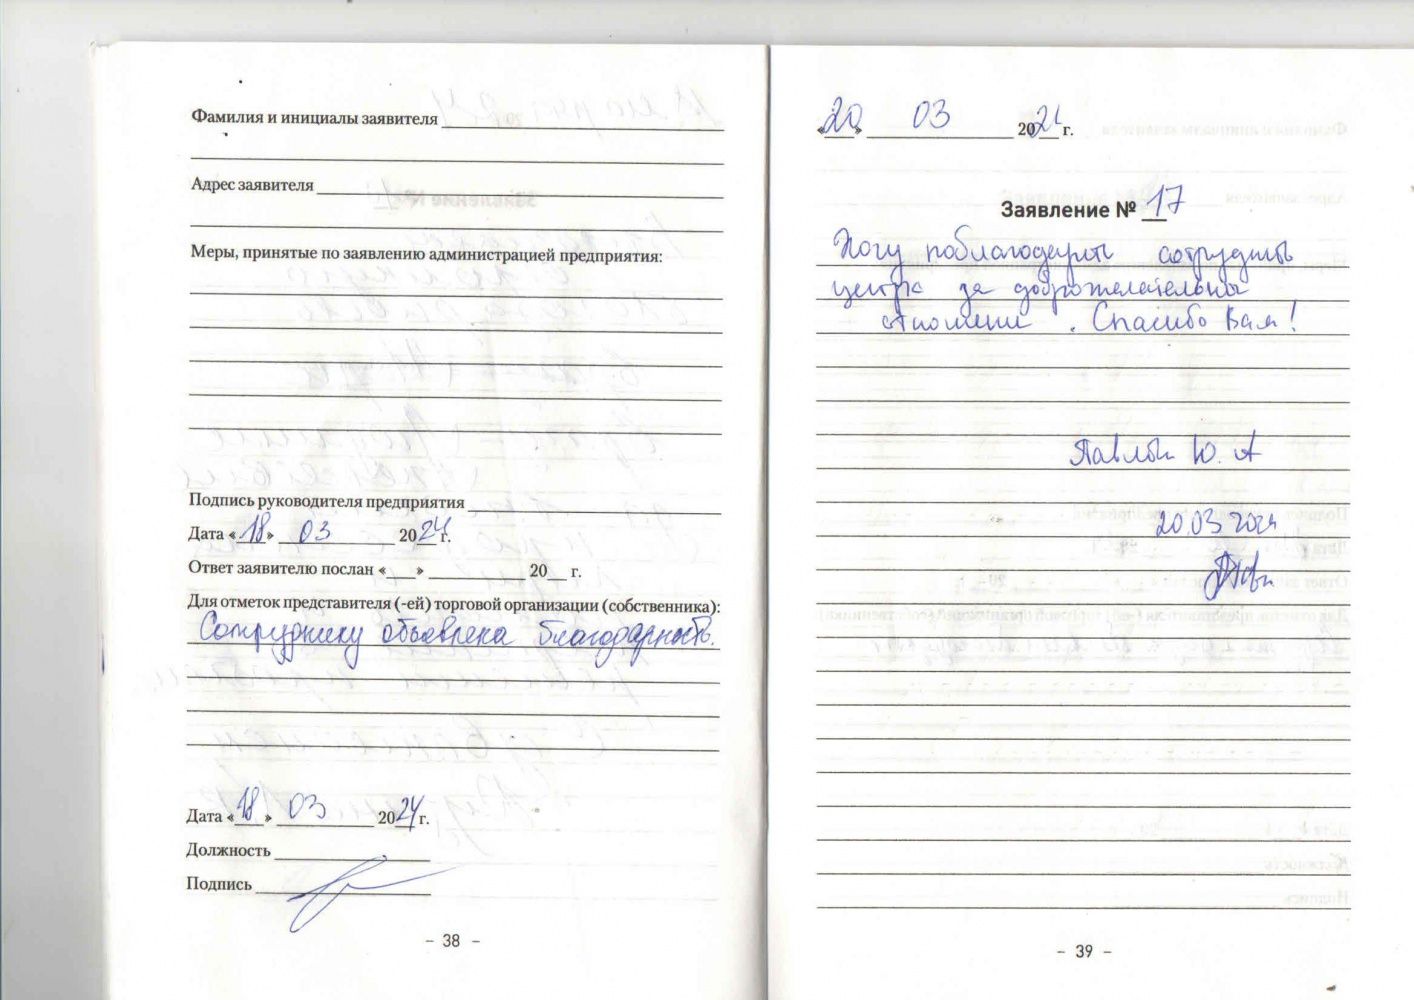 Фамилия и инициалы заявителя
Адрес заявителя
Меры, принятые по заявлению администрацией предприятия:
Подпись руководителя предприятия
Дата «18» 03 2024 г.
Ответ заявителю послан «___» ___ 20__ г.
Для отметок представителя (-ей) торговой организации (собственника):
Сотруднику объявлена благодарность.
Дата «18» 03 2024 г.
Должность
Подпись
- 38 -
«20» 03 2024 г.
Заявление № 17
Хочу поблагодарить сотрудников
центра за доброжелательное
отношение. Спасибо Вам!
Ю. А
20.03 2024
- 39 -